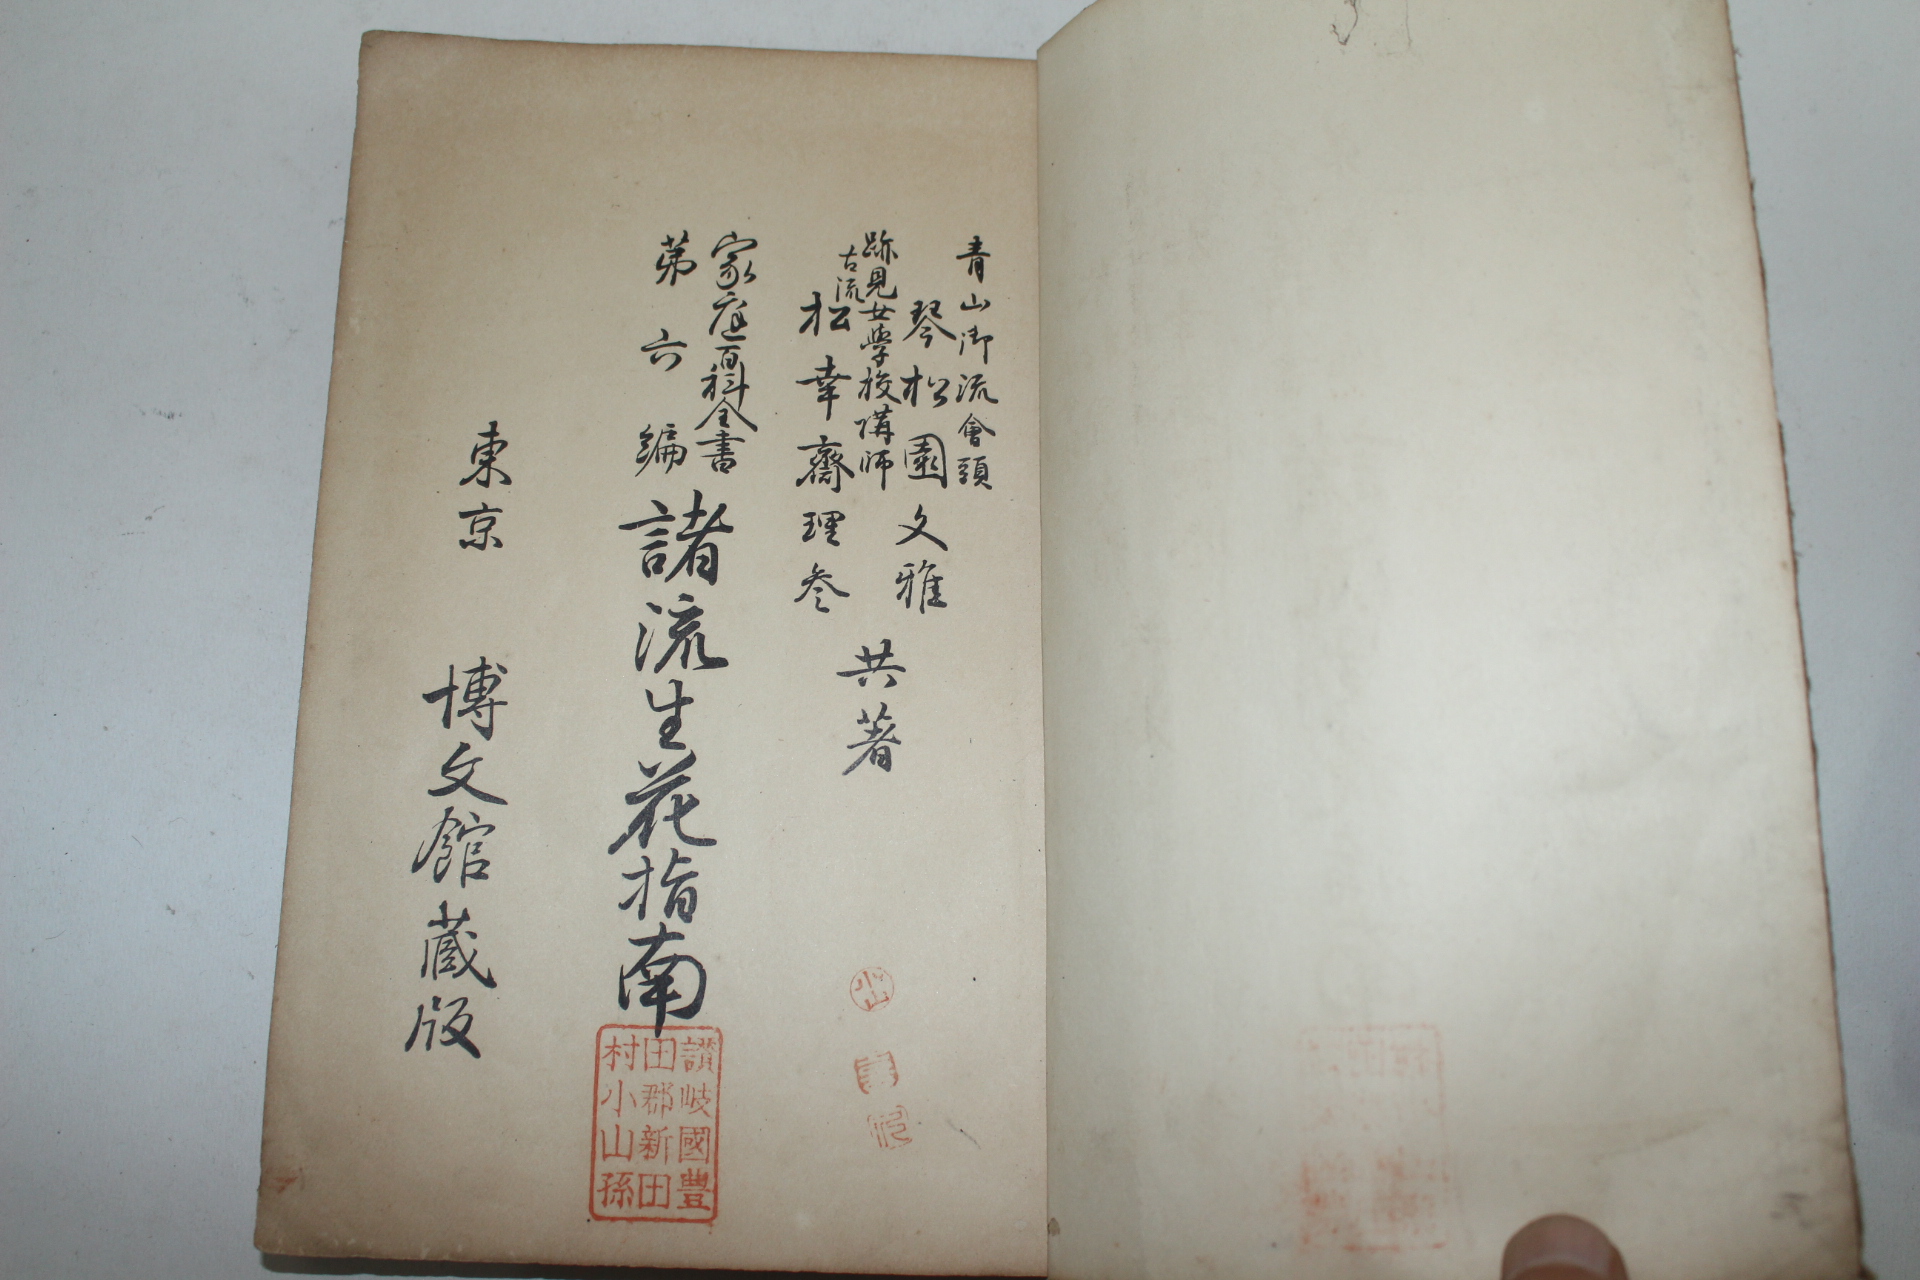 青山御流會頭
琴松園文雅
跡見女學校講師
古流
松幸齋理参
共著
家庭百科全書
第六編
諸流生花指南
東京 博文館蔵版
讃岐國豊
田郡新田
村小山孫
小山